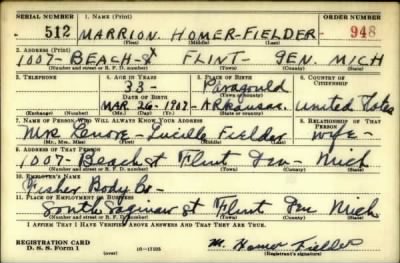 SERIAL NUMBER 1. NAME (Print) ORDER NUMBER
512 MARRION. HOMER-FIELDER- 948
(First) (Middle) (Last)
2. ADDRESS (Print)
1007-BEACH-St FLINT- GEN. MICH
(Number and street or R. F. D. number) (Town) (County) (State)
3. TELEPHONE 4. AGE IN YEARS 5. PLACE OF BIRTH 6. COUNTRY OF CITIZENSHIP
33- Paragould
DATE OF BIRTH (Town or county)
MAR 26-1907- Arkansas. United States
(Exchange) (Number) (Mo.) (Day) (Yr.) (State or country)
7. NAME OF PERSON WHO WILL ALWAYS KNOW YOUR ADDRESS 8. RELATIONSHIP OF THAT PERSON
Mrs Lenore- Lucille Fielder Wife-
(Mr., Mrs., Miss) (First) (Middle) (Last)
9. ADDRESS OF THAT PERSON
1007- Beach st Flint Gen- Mich
(Number and street or R. F. D. number) (Town) (County) (State)
10. EMPLOYER'S NAME
Fisher Body Co-
11. PLACE OF EMPLOYMENT OR BUSINESS
South Saginaw st Flint Gen Mich
(Number and street or R. F. D. number) (Town) (County) (State)
I AFFIRM THAT I HAVE VERIFIED ABOVE ANSWERS AND THAT THEY ARE TRUE.
REGISTRATION CARD
D. S. S. Form 1 (over) 16-17105 M. Homer Fielder
(Registrant's signature)